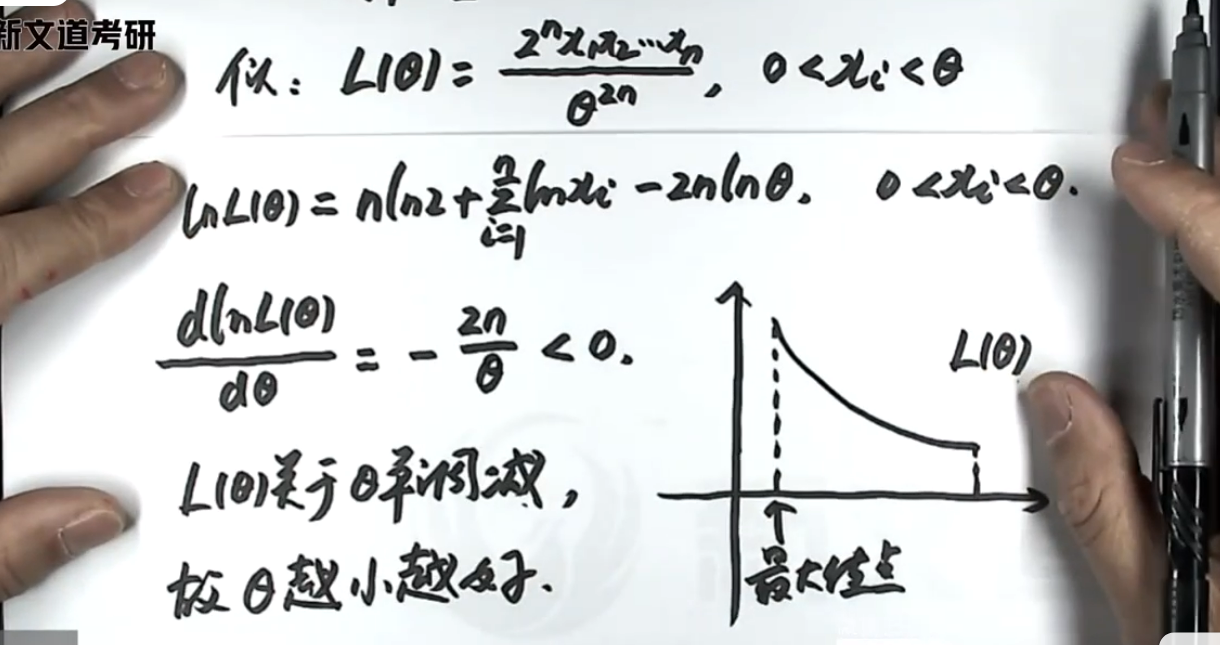 新文道考研
似: L(θ) = \frac{2^n x_1 x_2 ⋯ x_n}{θ^{2n}}, 0 < x_i < θ
ln L(θ) = n ln 2 + \sum_{i=1}^{n} ln x_i − 2n ln θ, 0 < x_i < θ.
\frac{d ln L(θ)}{dθ} = − \frac{2n}{θ} < 0.
L(θ)
L(θ)关于θ单调减,
故θ越小越好.
最大值点